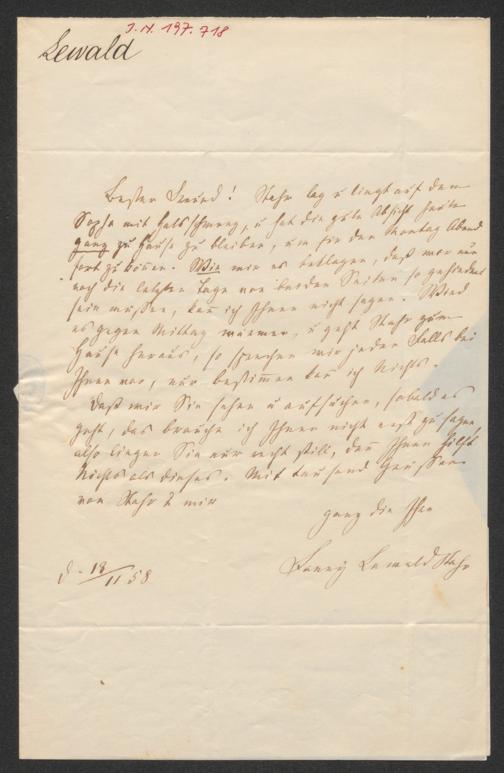 J. N. 197.718
Lewald
Bester Freund! Stahr lag u liegt auf dem
Sopha mit Halsschmerz, u hat die gute Absicht heute
ganz zu Hause zu bleiben, um für den Montag Abend
fort zu können. Wie wir es beklagen, daß wir nun
noch die letzten Tage von beiden Seiten so gehindert
sein müssen, kan ich Ihnen nicht sagen. Wird
es gegen Mittag wärmer, u geht Stahr zum
Hause heraus, so sprechen wir jeden Falls bei
Ihnen vor, nur bestimmen kan ich Nichts.
Daß wir Sie sehen u aufsuchen, sobald es
geht, das brauche ich Ihnen nicht erst zu sagen,
also liegen Sie nur recht still, denn Ihnen hilft
Nichts als dieses. Mit tausend Grüssen
von Stahr & mir
ganz die Ihre
Fanny Lewald Stahr
d. 18/11 58